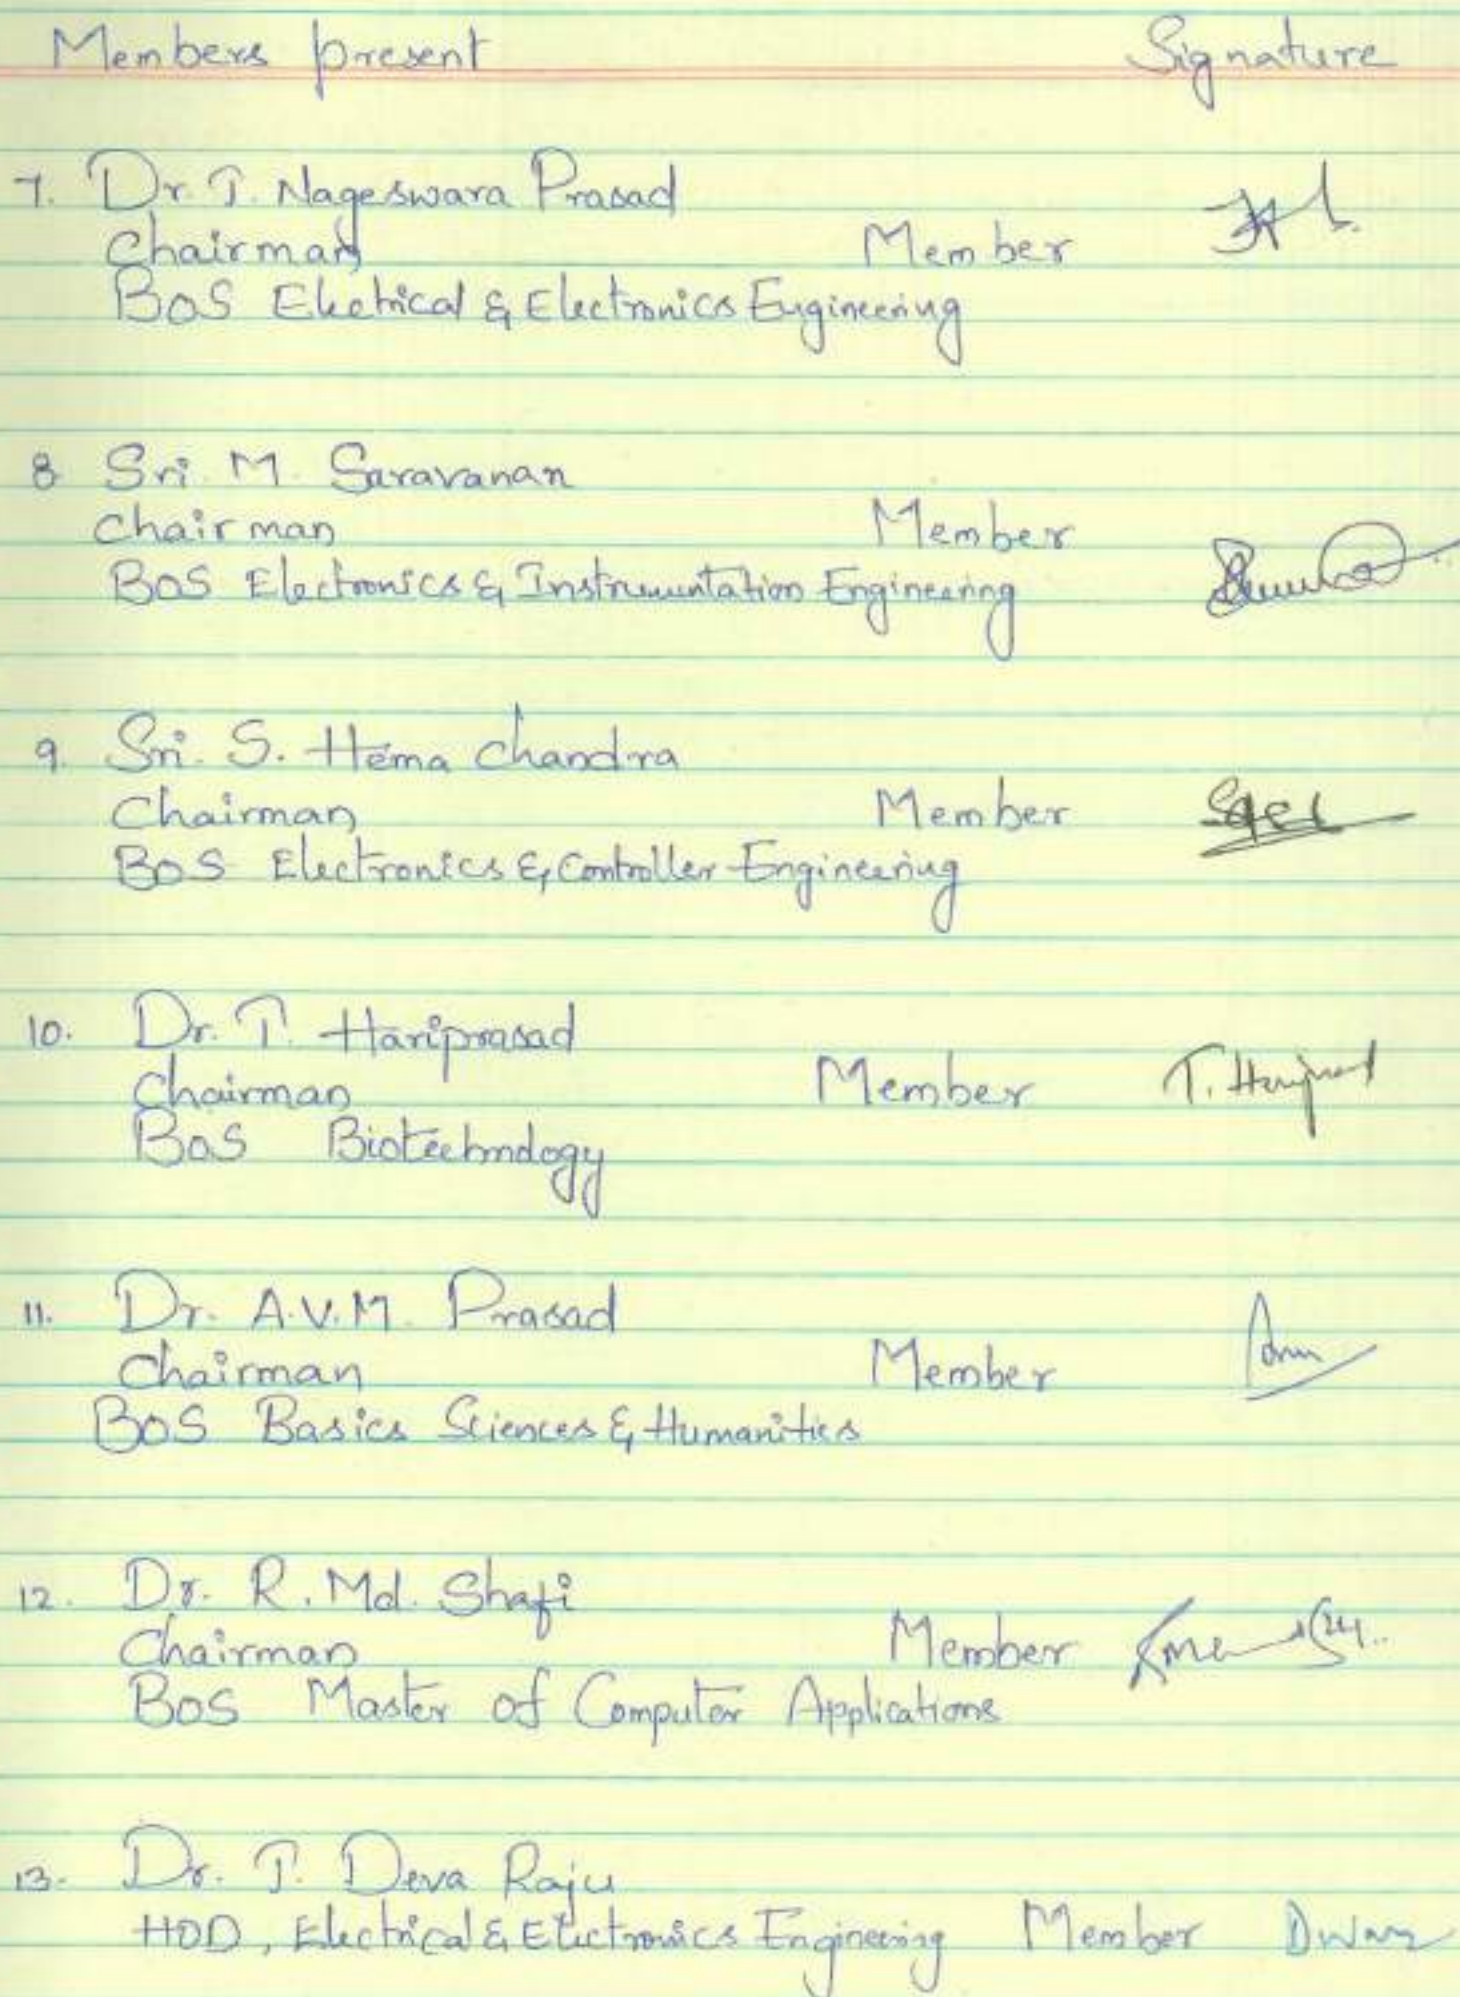 Members present Signature
7. Dr. T. Nageswara Prasad
Chairman Member
BOS Electrical & Electronics Engineering
8. Sri. M. Saravanan
Chairman Member
BOS Electronics & Instrumentation Engineering
9. Sri. S. Hema Chandra
Chairman Member
BOS Electronics & Controller Engineering
10. Dr. T. Hariprasad
Chairman Member T. Hariprasad
BOS Biotechnology
11. Dr. A.V.M. Prasad
Chairman Member
BOS Basics Sciences & Humanities
12. Dr. R. Md. Shafi
Chairman Member
BOS Master of Computer Applications
13. Dr. T. Deva Raju
HOD, Electrical & Electronics Engineering Member